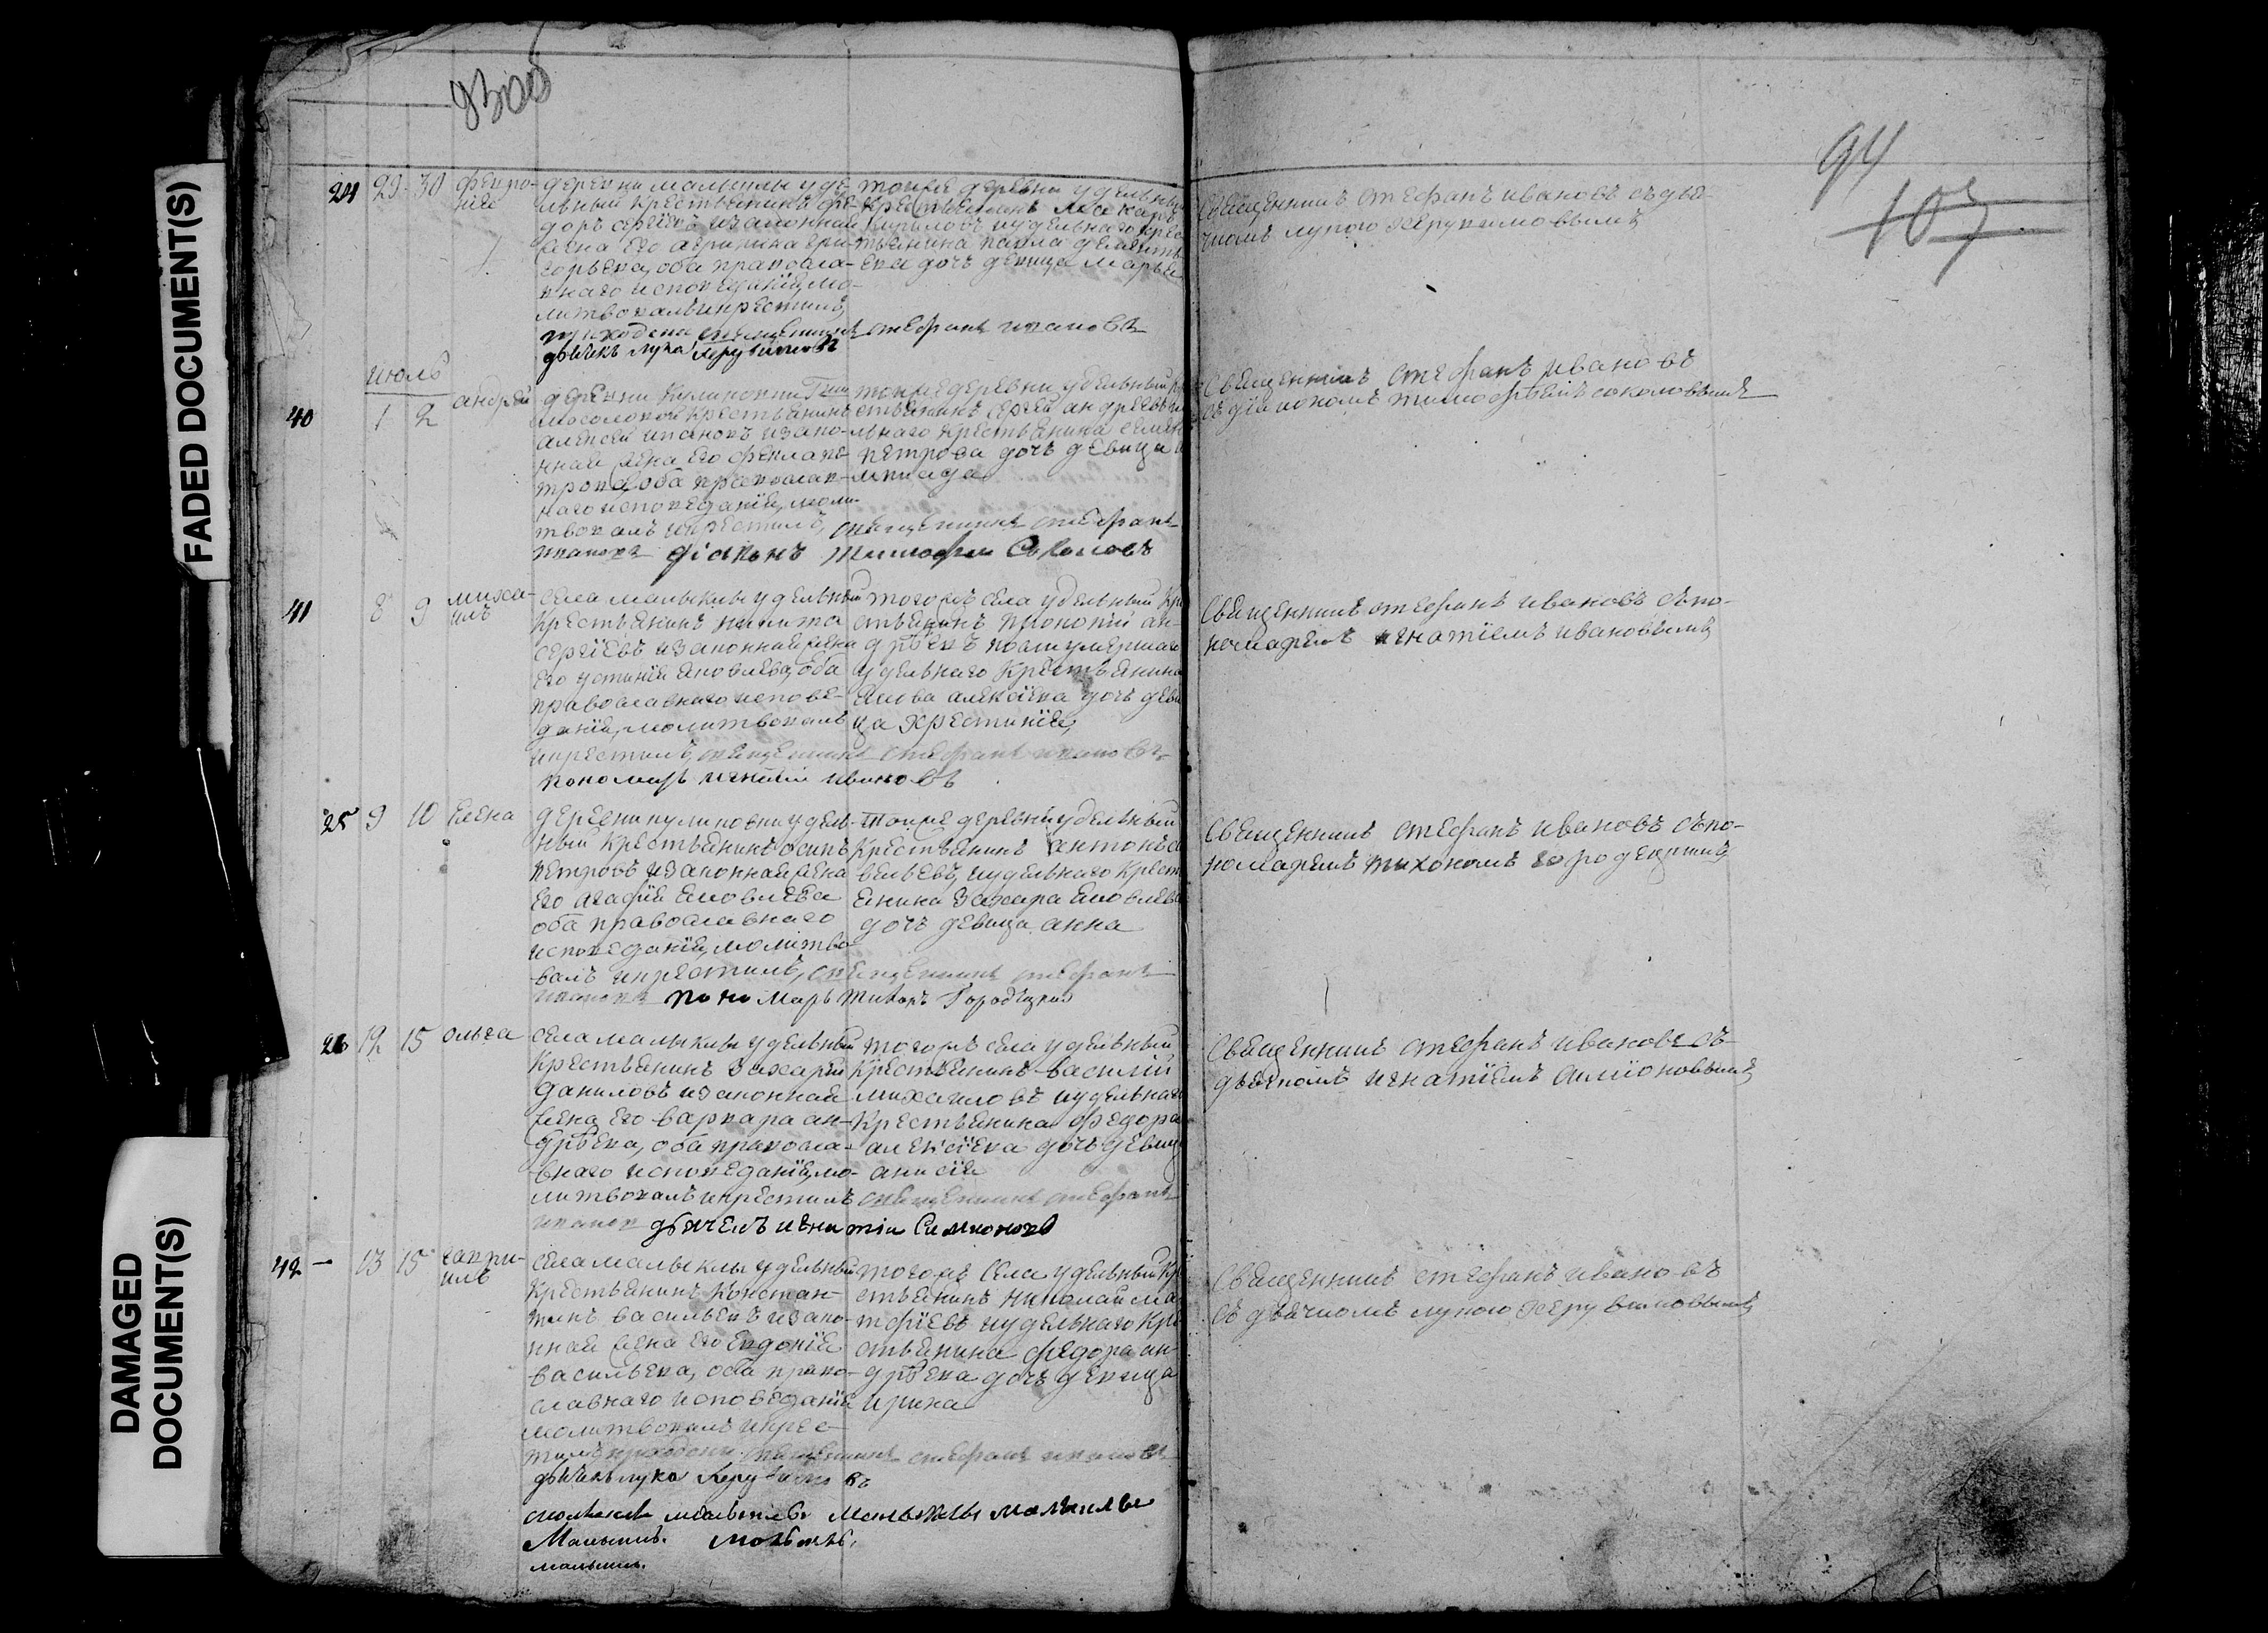 FADED DOCUMENT(S)
DAMAGED
DOCUMENT(S)
94
107
24 29 30 февро-
ния
деревни малыклы уде-
льный крестьянинъ фе-
доръ сергѣевъ изаконная
жена его агрипина гри-
горьева, оба правосла-
внаго исповеданія, мо-
литвовалъ икрестилъ
священникъ стефанъ ивановъ
дьячекъ лука херувимовъ
тойже деревни удельный
крестьянинъ макаръ
кириловъ иудельнаго крес
тьянина павла дементь
ева дочь девица марья
Священникъ стефанъ ивановъ съдья-
чкомъ лукою херувимовымъ
июль
40 1 2 андрей
деревни Куликовки
крестьянинъ
алексей ивановъ изако-
нная жена его фекла пе-
трова, оба православ-
наго исповеданія, моли-
твовалъ икрестилъ, священникъ стефанъ
ивановъ діаконъ тимофей Соколовъ
тойже деревни удельный кре
стьянинъ сергей андреевъ иуде
льнаго крестьянина семена
петрова дочь девица
Священникъ стефанъ ивановъ
съдіакономъ тимофѣемъ соколовымъ
41 8 9 миха-
илъ
села малыклы удельный
крестьянинъ никита
сергіевъ изаконная жена
его устинія яковлева, оба
православнаго испове-
данія, молитвовалъ
икрестилъ, священникъ стефанъ ивановъ
пономарь игнатій ивановъ
тогожъ села удельный кре
стьянинъ прокопій ан-
дрѣевъ иудельнаго
удельнаго крестьянина
якова алексіева дочь деви
ца христинія,
Священникъ стефанъ ивановъ съпо-
номаремъ игнатіемъ ивановымъ
25 9 10 елена
деревни куликовки удель-
ный крестьянинъ осипъ
петровъ изаконная жена
его агафія яковлева
оба православнаго
исповеданія, молитво
валъ икрестилъ, священникъ стефанъ
ивановъ пономарь тихонъ Городецкій
тойже деревни удельный
крестьянинъ антонъ са
вельевъ, иудельнаго крест
янина захара яковлева
дочь девица анна
Священникъ стефанъ ивановъ съпо-
номаремъ тихономъ городецкимъ
26 12 15 ольга
села малыклы удельный
крестьянинъ захарій
даниловъ изаконная
жена его варвара ан-
дрѣева, оба правосла-
внаго исповеданія, мо-
литвовалъ икрестилъ священникъ стефанъ
ивановъ дьячекъ игнатій Симионовъ
тогожъ села удельный
крестьянинъ василій
михаиловъ иудельнаго
крестьянина федора
алексіева дочь девица
анисія
Священникъ стефанъ ивановъ съ
дьячкомъ игнатіемъ симіоновымъ
42 - 13 15 гаври-
илъ
села малыклы удельный
крестьянинъ констан-
тинъ васильевъ изако-
нная жена его евдокія
васильева, оба право-
славнаго исповеданія
молитвовалъ икрес-
тилъ священникъ стефанъ ивановъ
дьячекъ лука херувимовъ
тогожъ села удельный кре
стьянинъ николай ма
тфіевъ иудельнаго кре
стьянина федора ан-
дрѣева дочь девица
ирина
Священникъ стефанъ ивановъ
съдьячкомъ лукою херувимовымъ
малыклы малыклы